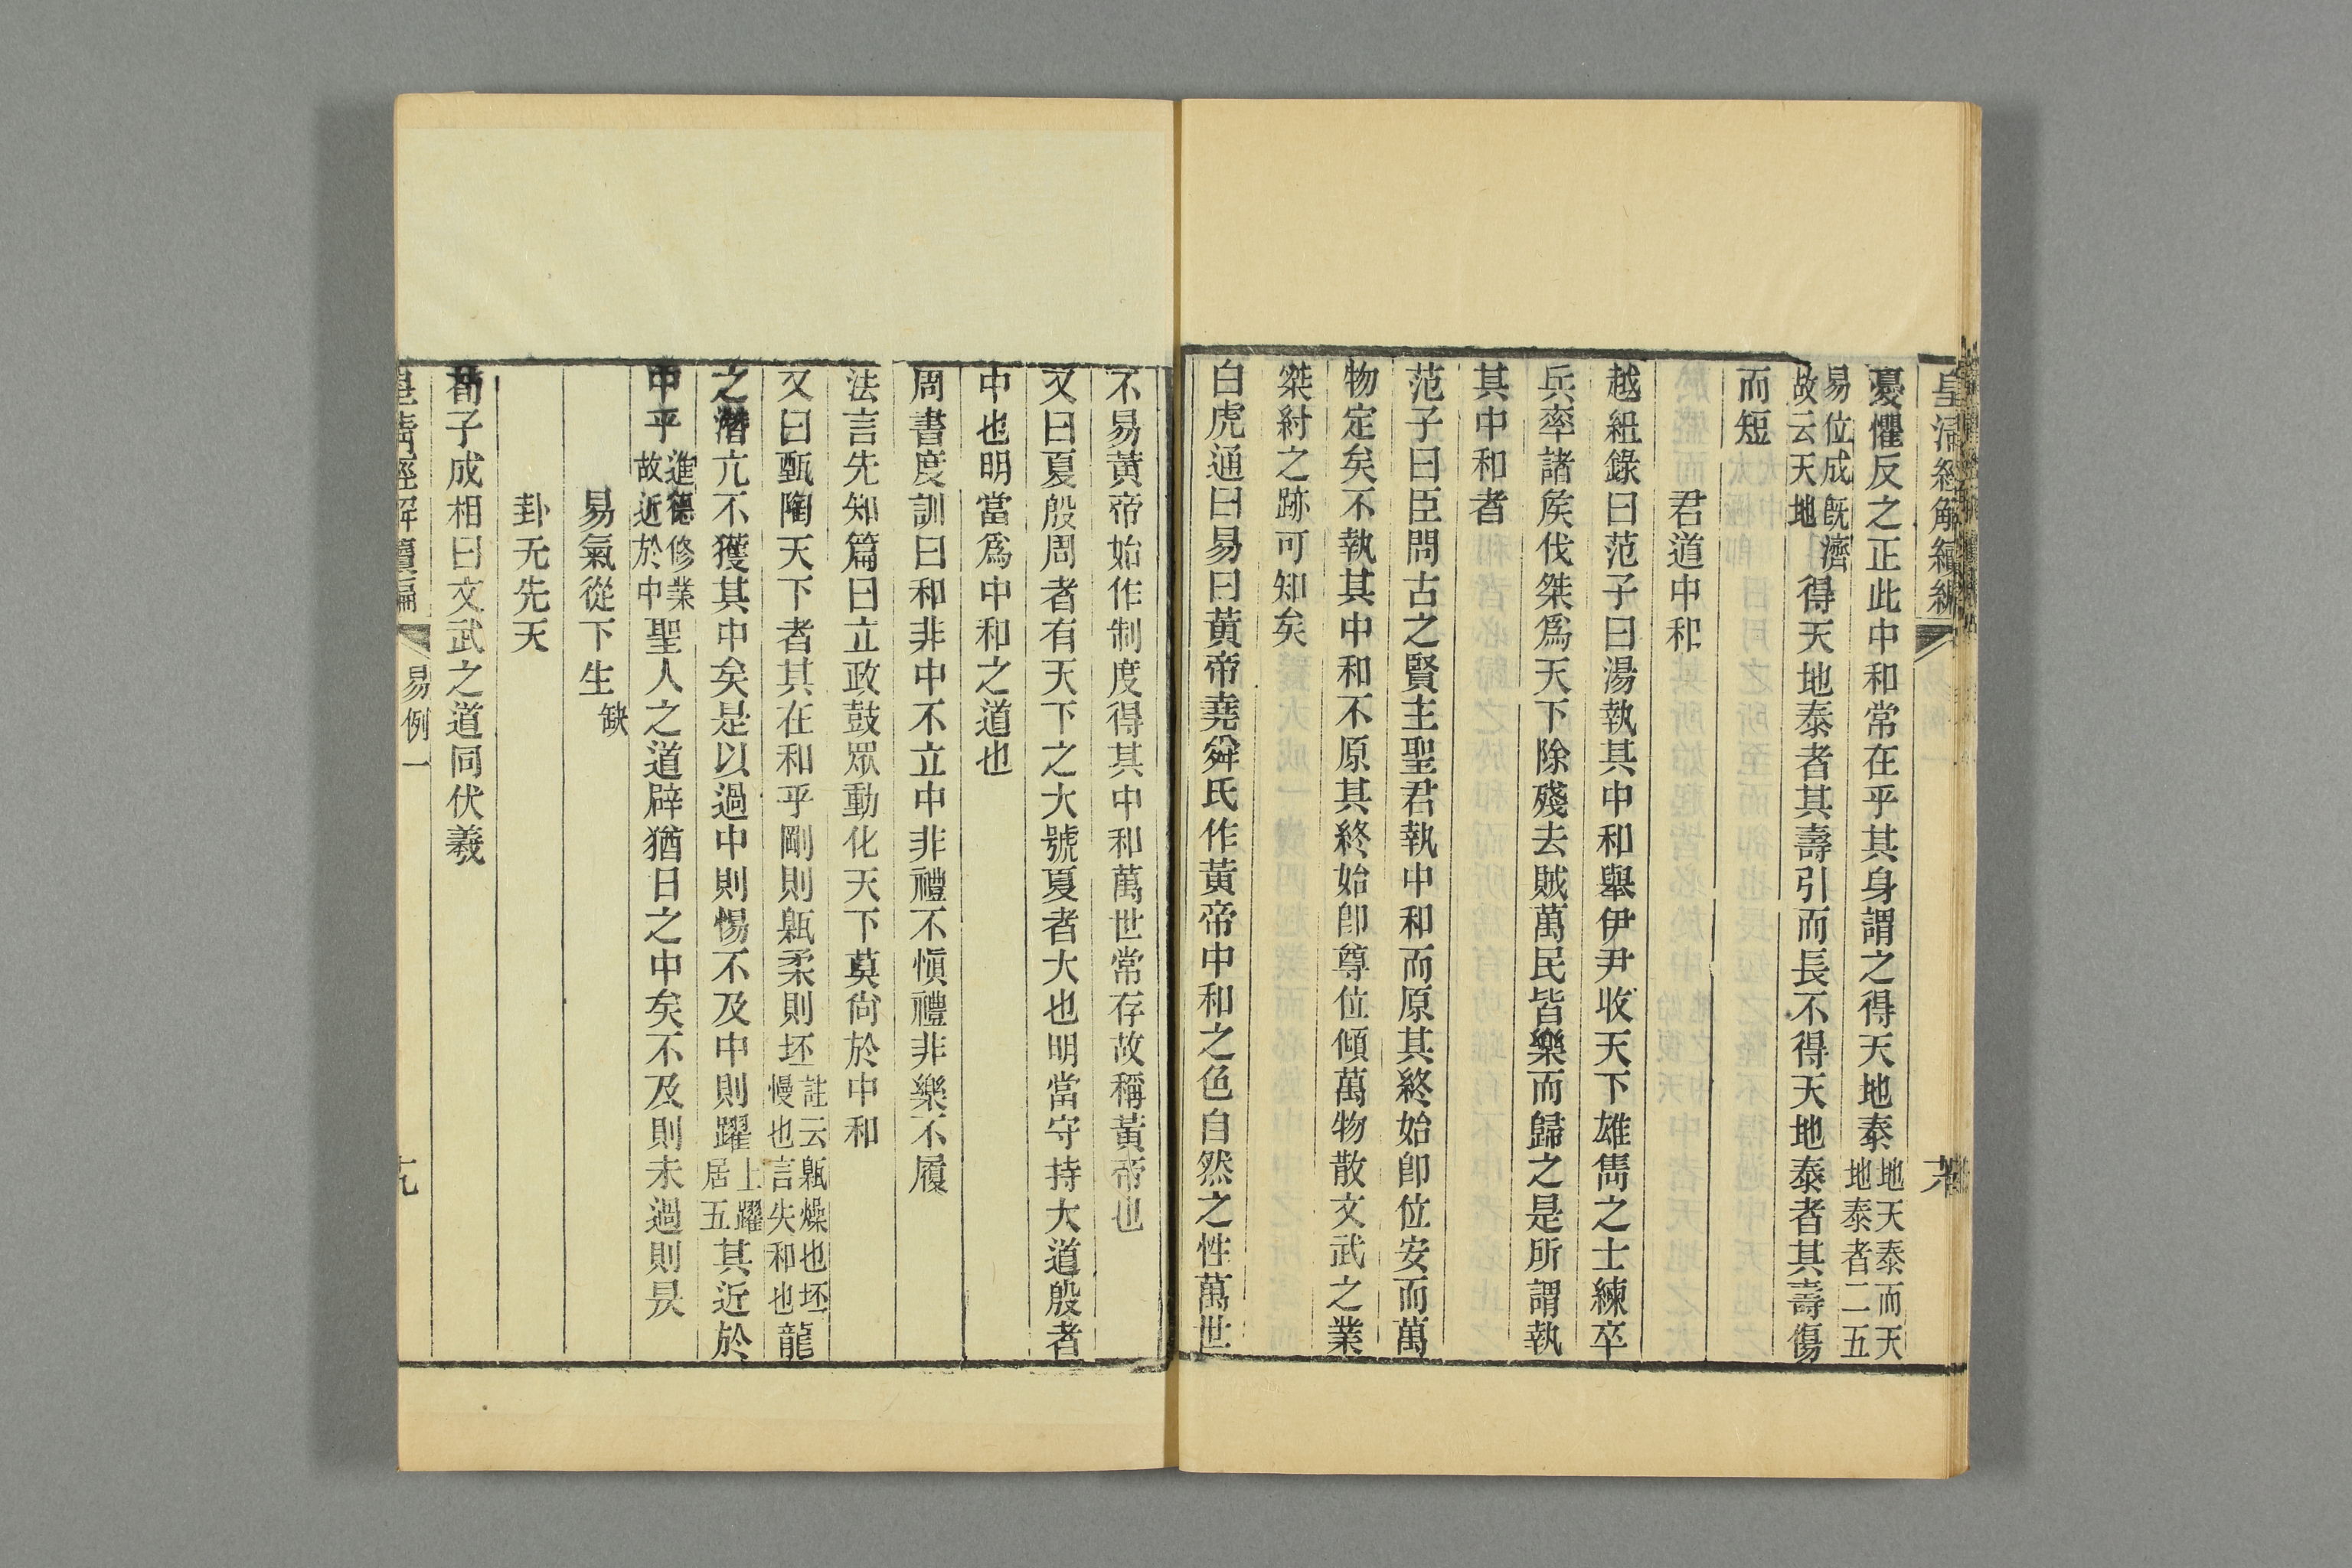 皇清經解續編
憂懼反之正此中和常在乎其身謂之得天地泰地天泰而天地泰者二五
易位成旣濟故云天地得天地泰者其壽引而長不得天地泰者其壽傷
而短
君道中和
越紐錄曰范子曰湯執其中和舉伊尹收天下雄雋之士練卒
兵率諸矦伐桀爲天下除殘去賊萬民皆樂而歸之是所謂執
其中和者
范子曰臣問古之賢主聖君執中和而原其終始卽位安而萬
物定矣不執其中和不原其終始卽尊位傾萬物散文武之業
桀紂之跡可知矣
白虎通曰易曰黃帝堯舜氏作黃帝中和之色自然之性萬世
不易黃帝始作制度得其中和萬世常存故稱黃帝也
又曰夏殷周者有天下之大號夏者大也明當守持大道殷者
中也明當爲中和之道也
周書度訓曰和非中不立中非禮不愼禮非樂不履
法言先知篇曰立政鼓眾動化天下莫尙於中和
又曰甄陶天下者其在和乎剛則甈柔則坯註云甈燥也坯慢也言失和也龍
之潛亢不獲其中矣是以過中則惕不及中則躍上躍居五其近於
中乎進德修業故近於中聖人之道辟猶日之中矣不及則未過則昃
易氣從下生缺
卦无先天
荀子成相曰文武之道同伏羲
皇清經解續編 易例一 十九